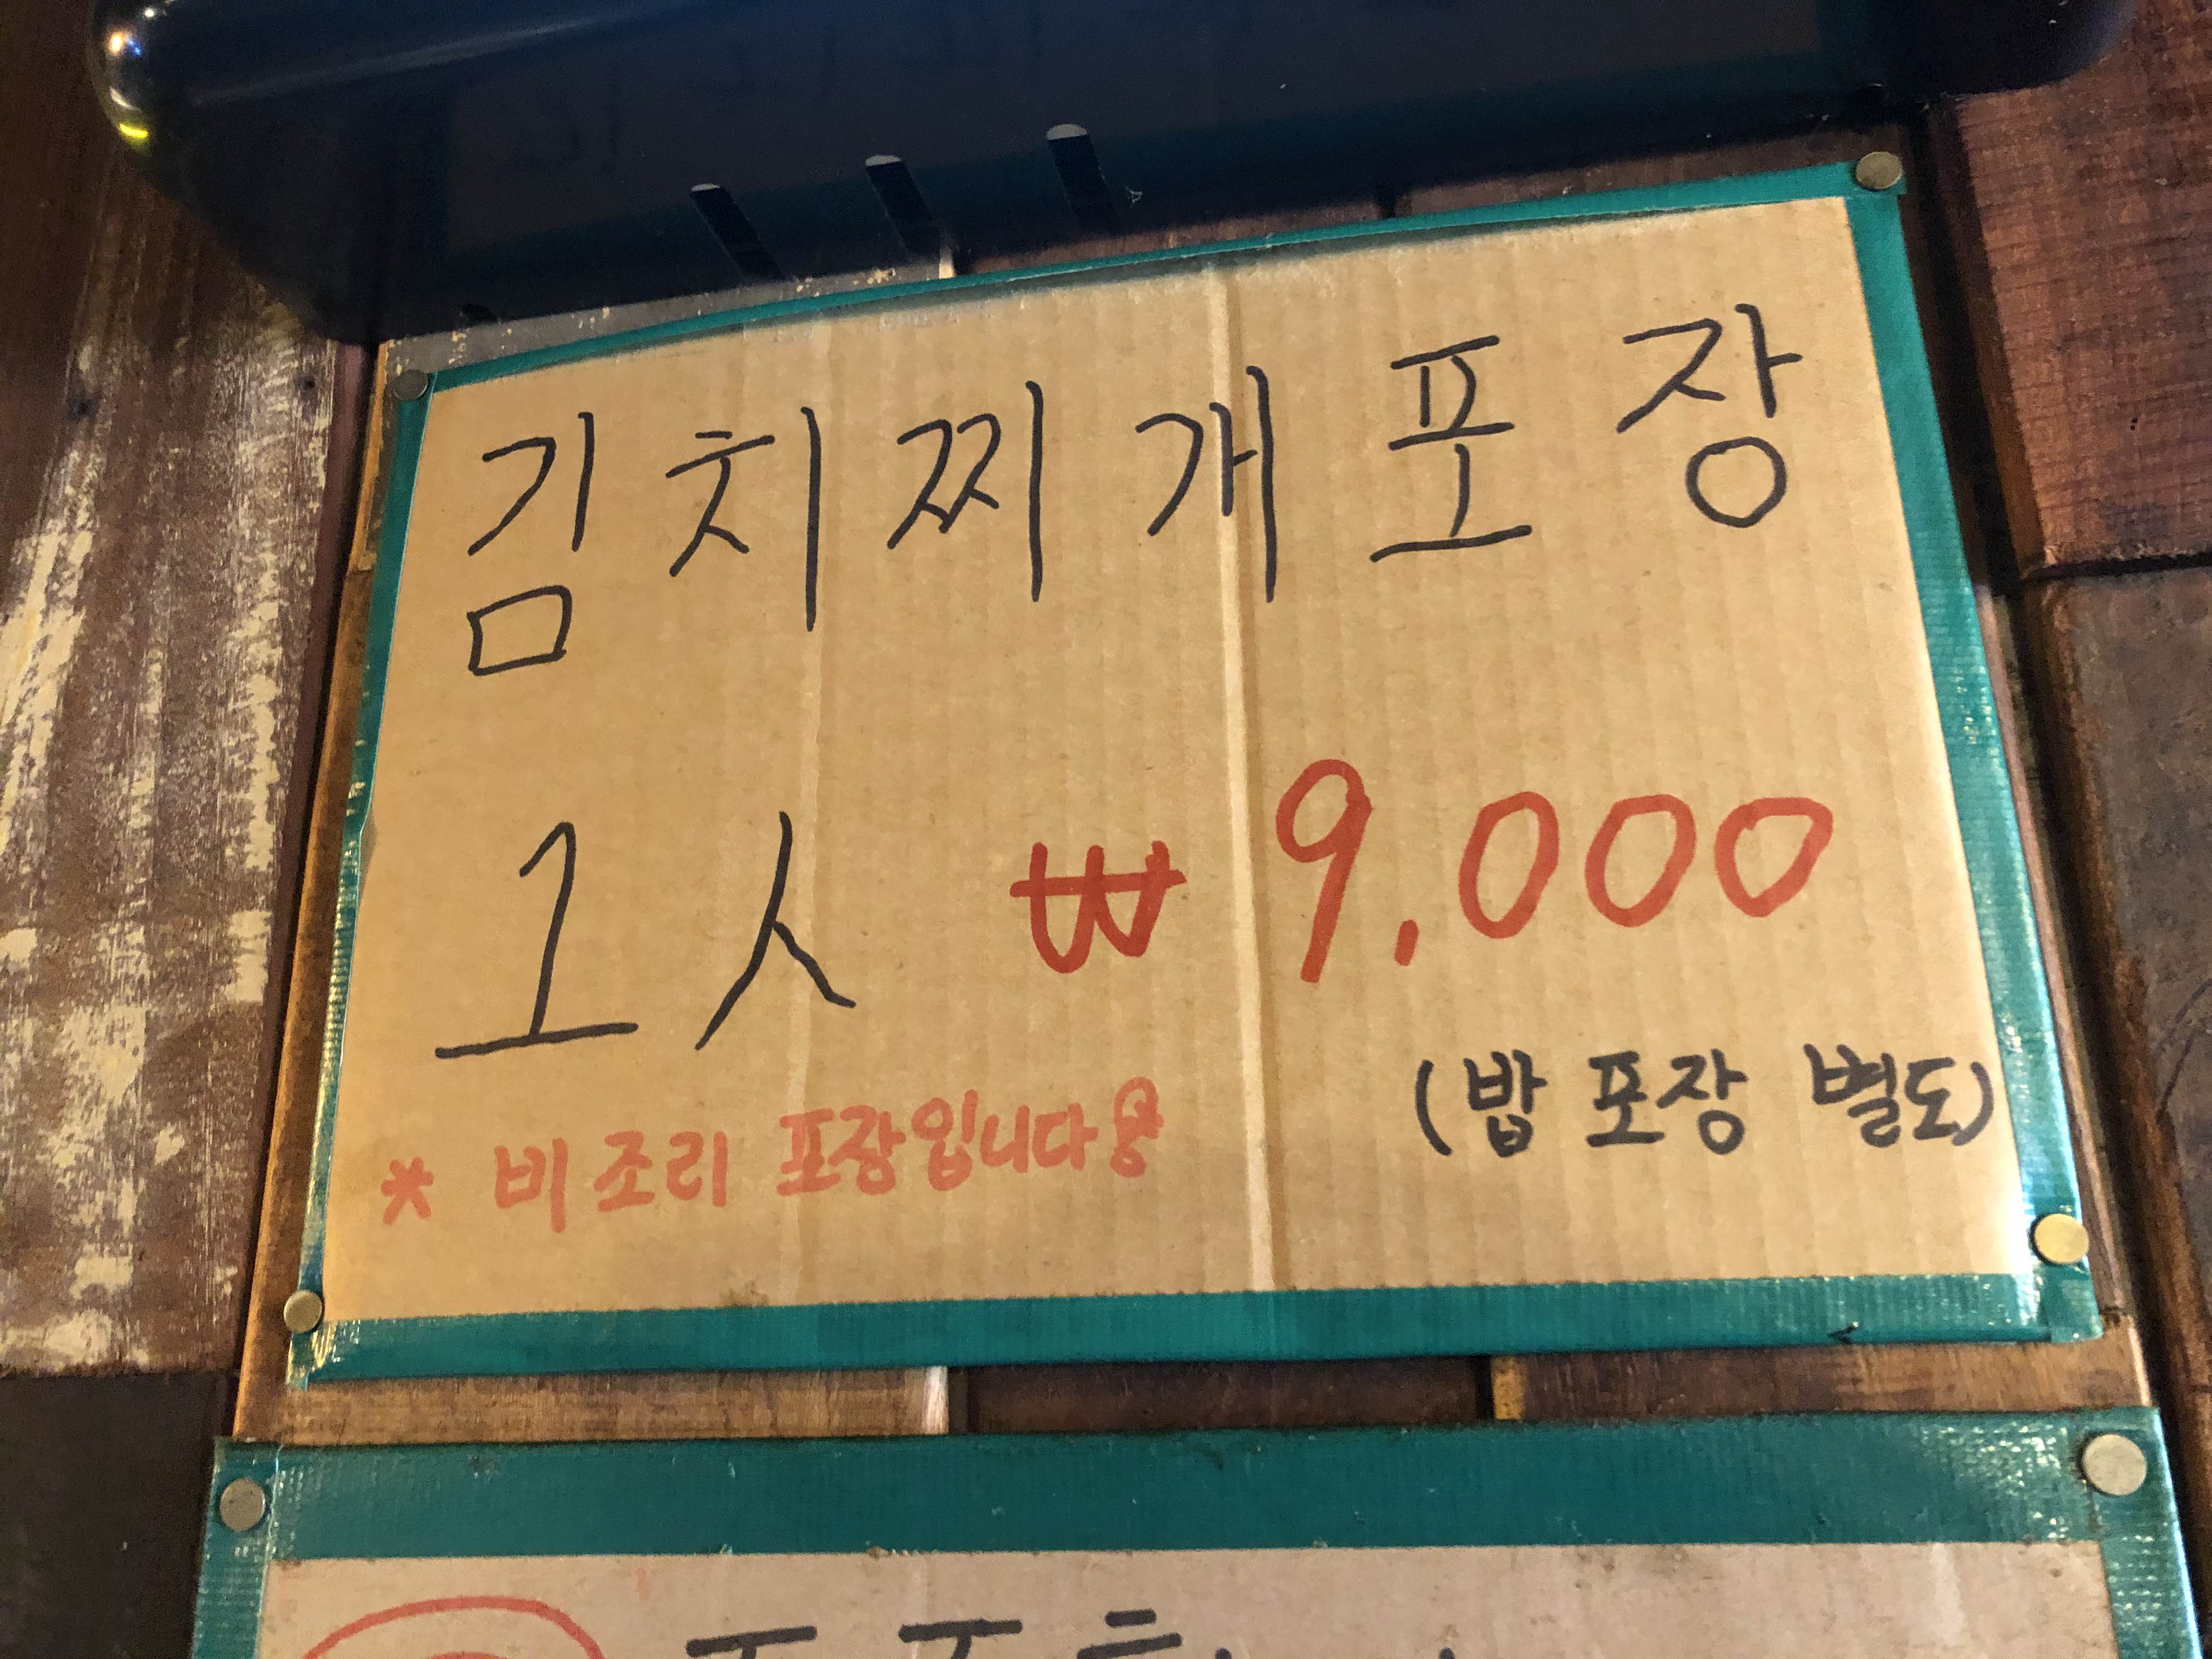 김치찌개포장
1人 ₩ 9.000
(밥 포장 별도)
* 비조리 포장입니다용